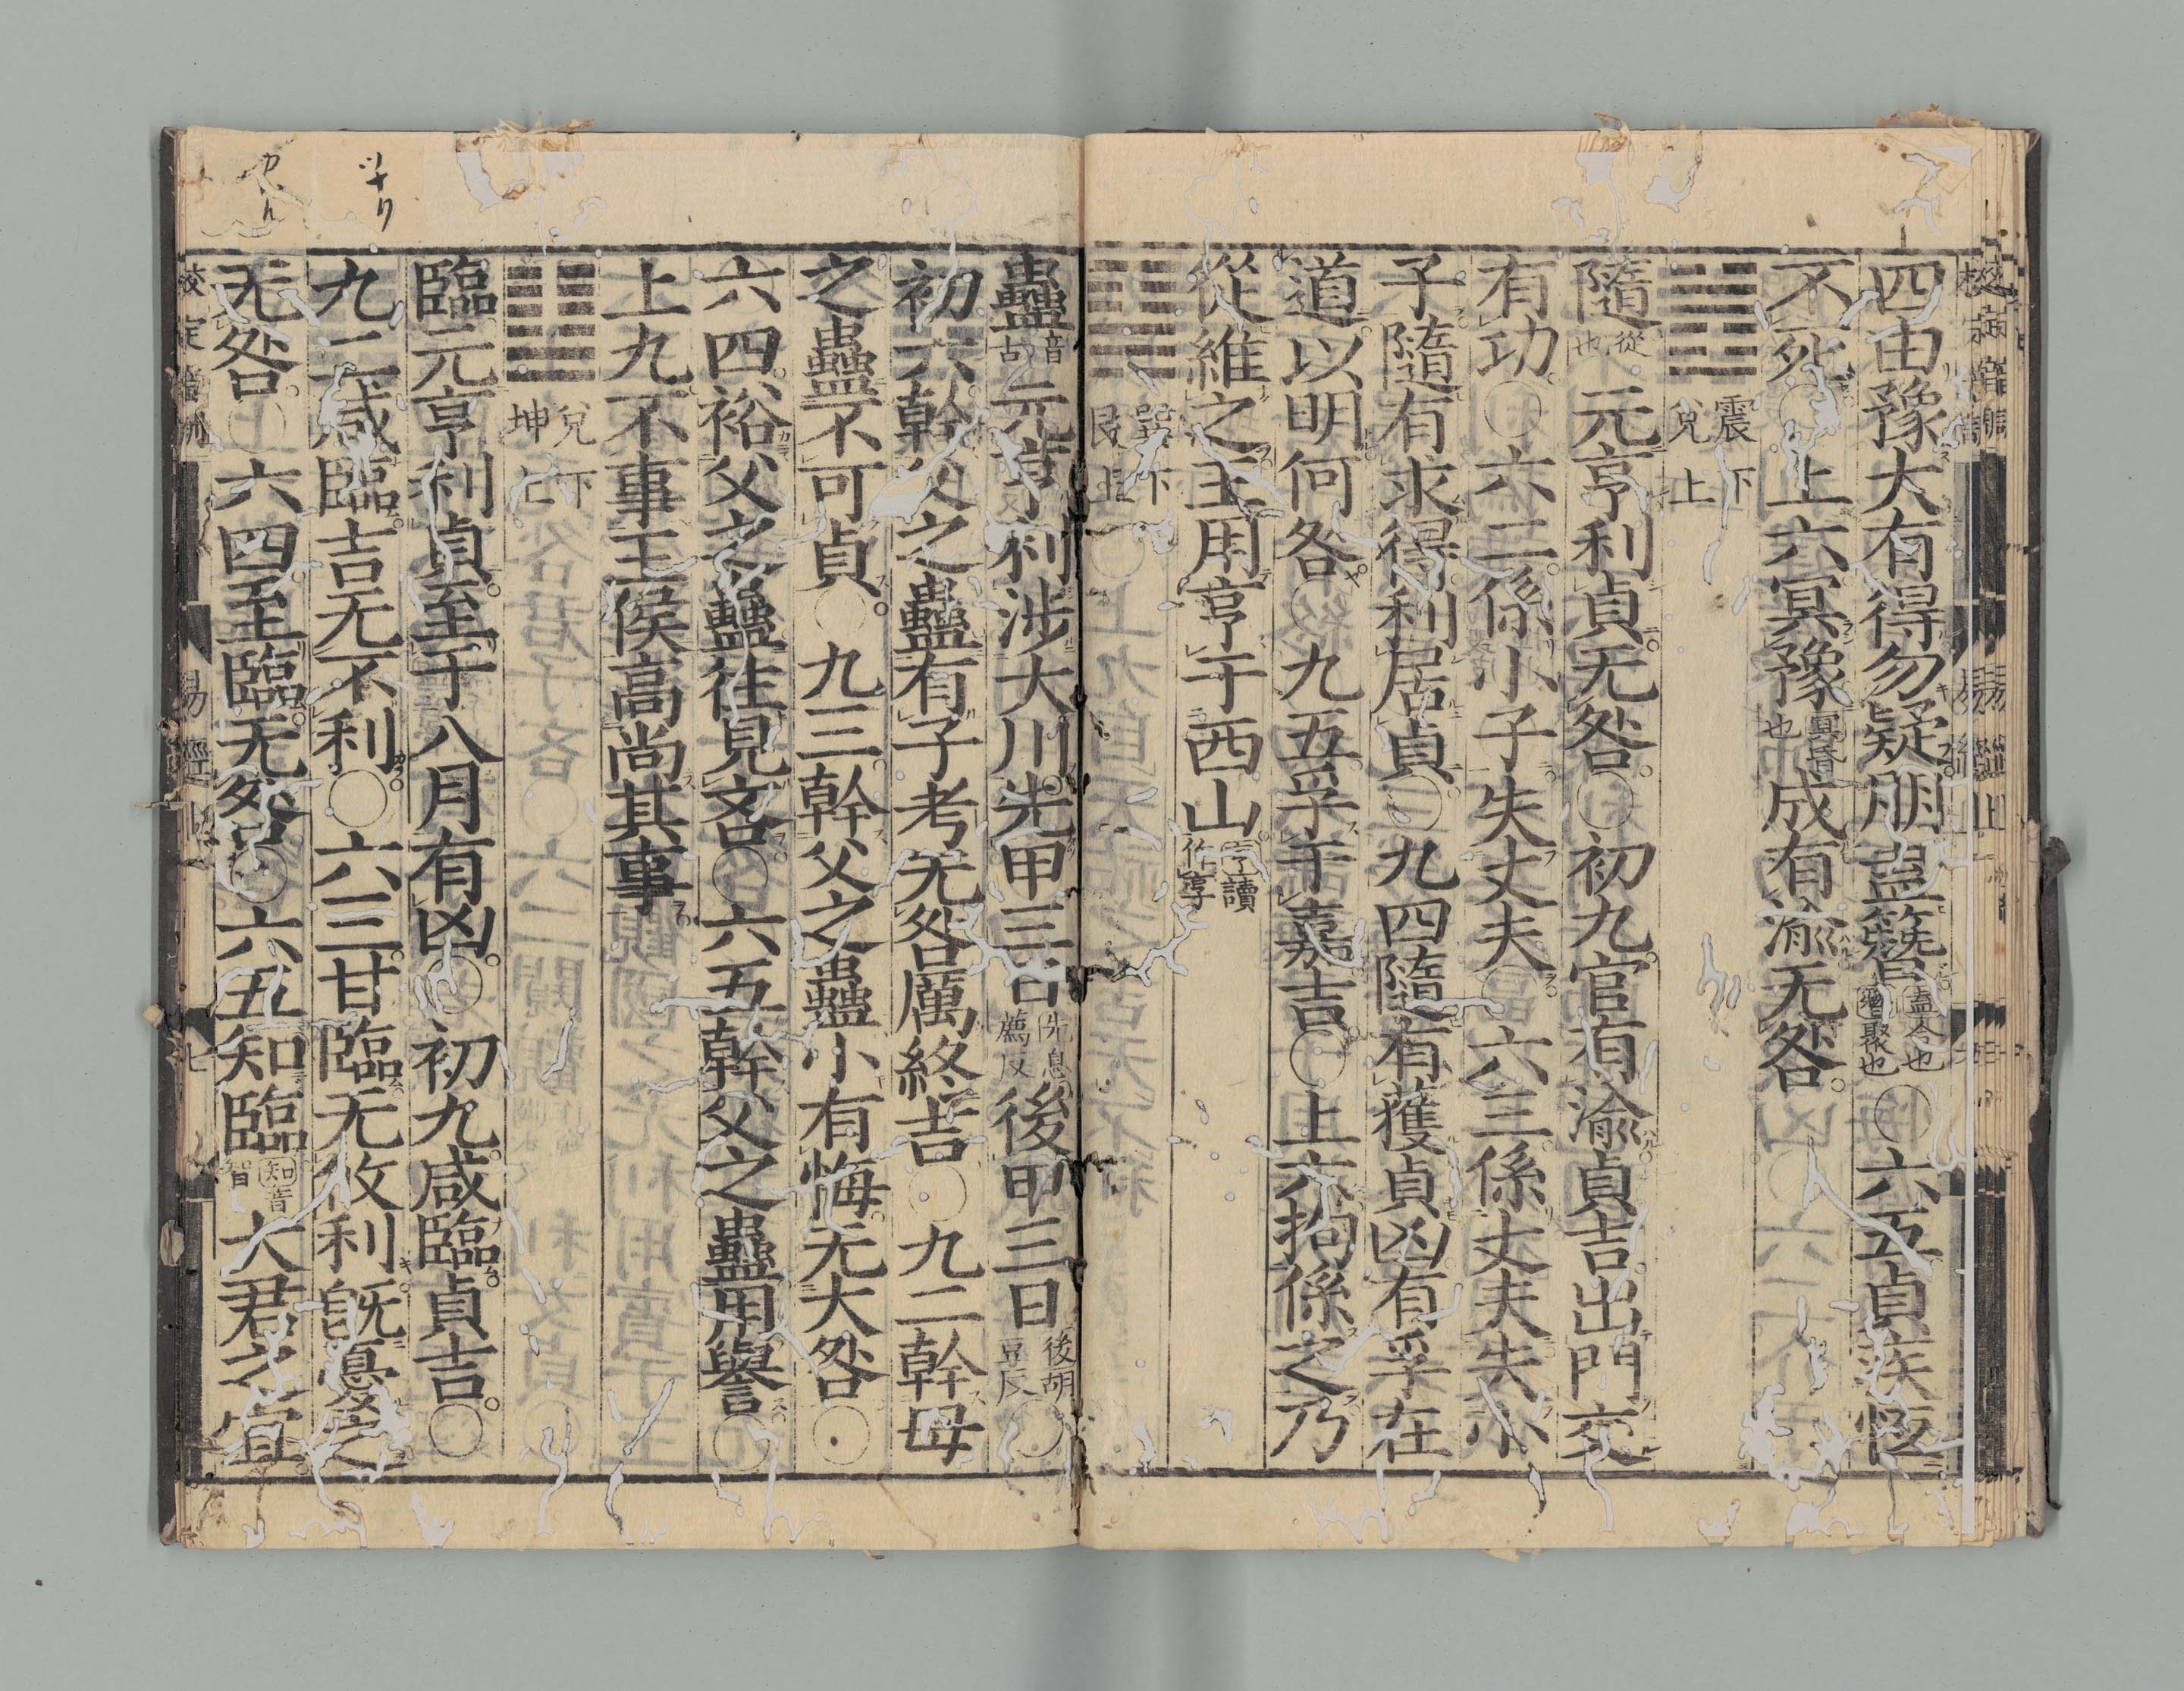 四由豫大有得勿疑朋盍簪盍合也簪聚也○六五貞疾恆
不死○上六冥豫冥昏也成有渝无咎
震下兌上
隨從也元亨利貞无咎○初九官有渝貞吉出門交
有功○六二係小子失丈夫○六三係丈夫失小
子隨有求得利居貞○九四隨有獲貞凶有孚在
道以明何咎○九五孚于嘉吉○上六拘係之乃
從維之王用亨于西山亨讀作享
巽下艮上
蠱音古元亨利涉大川先甲三日先息薦反後甲三日後胡豆反○
初六幹父之蠱有子考无咎厲終吉○九二幹母
之蠱不可貞○九三幹父之蠱小有悔无大咎○
六四裕父之蠱往見吝○六五幹父之蠱用譽○
上九不事王侯高尚其事
兌下坤上
臨元亨利貞至于八月有凶○初九咸臨貞吉○
九二咸臨吉无不利○六三甘臨无攸利既憂之
无咎○六四至臨无咎○六五知臨知音智大君之宜
易經上 七